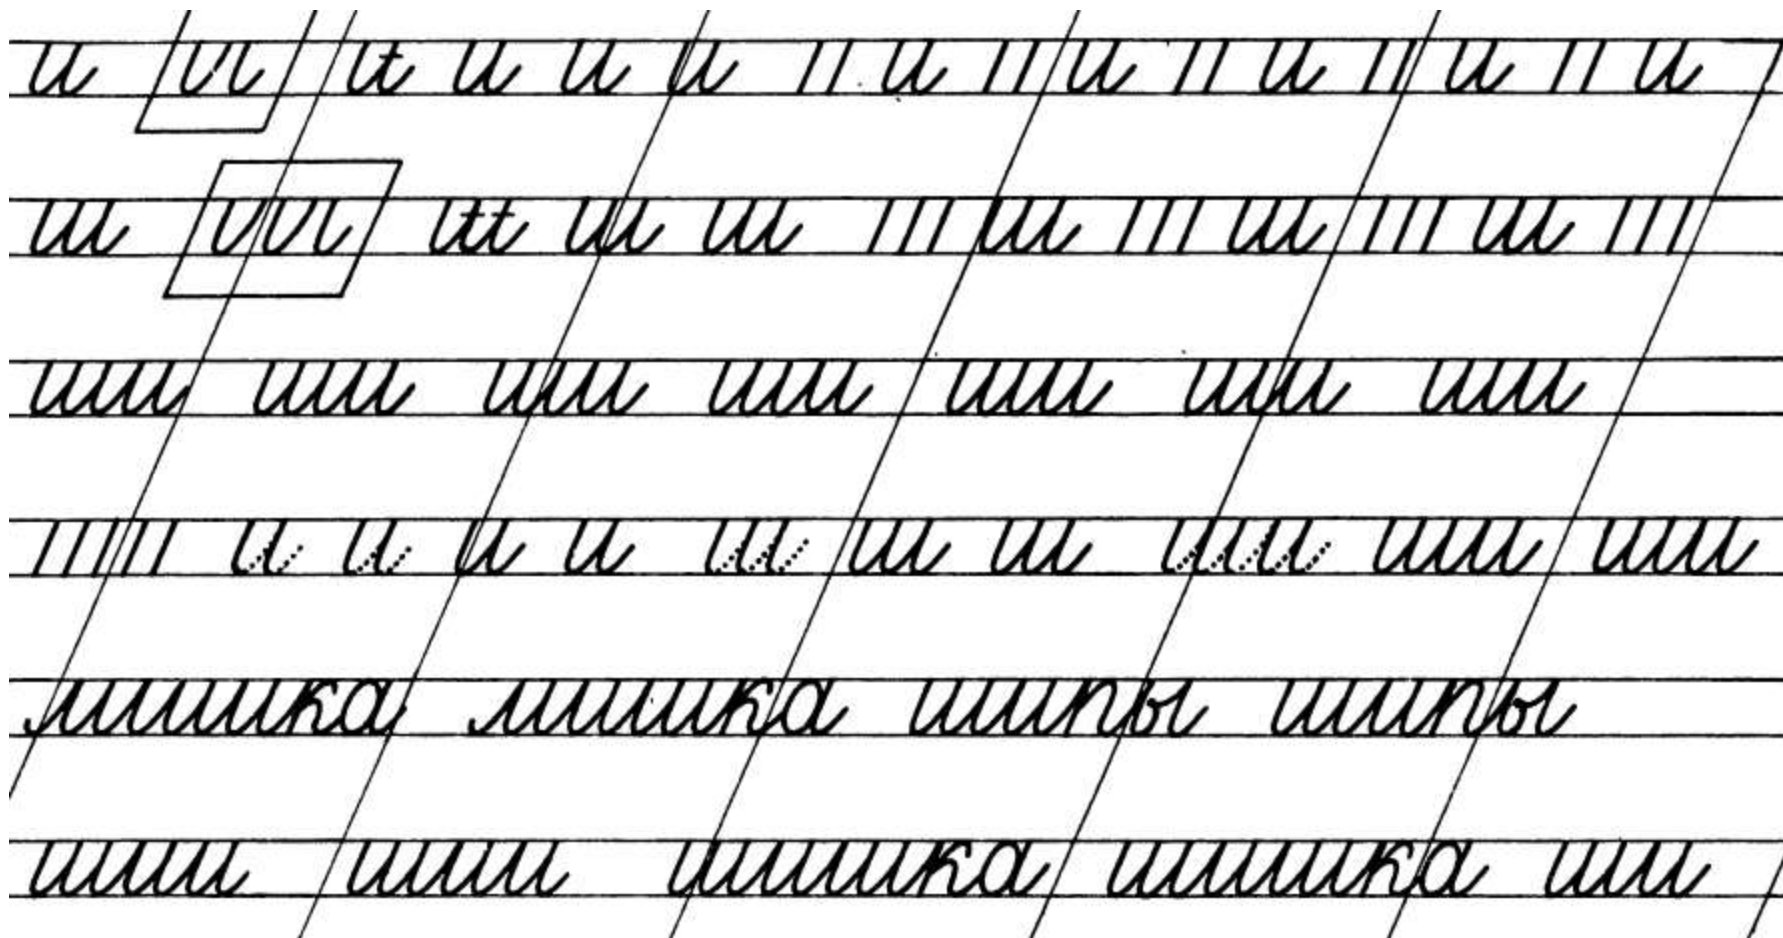 и и и и и и и и и и
ш ш ш ш ш ш ш
ши ши ши ши ши ши ши
и и и и ш ш ш ши ши ши
мишка мишка шипы шипы
шишка шишка ши